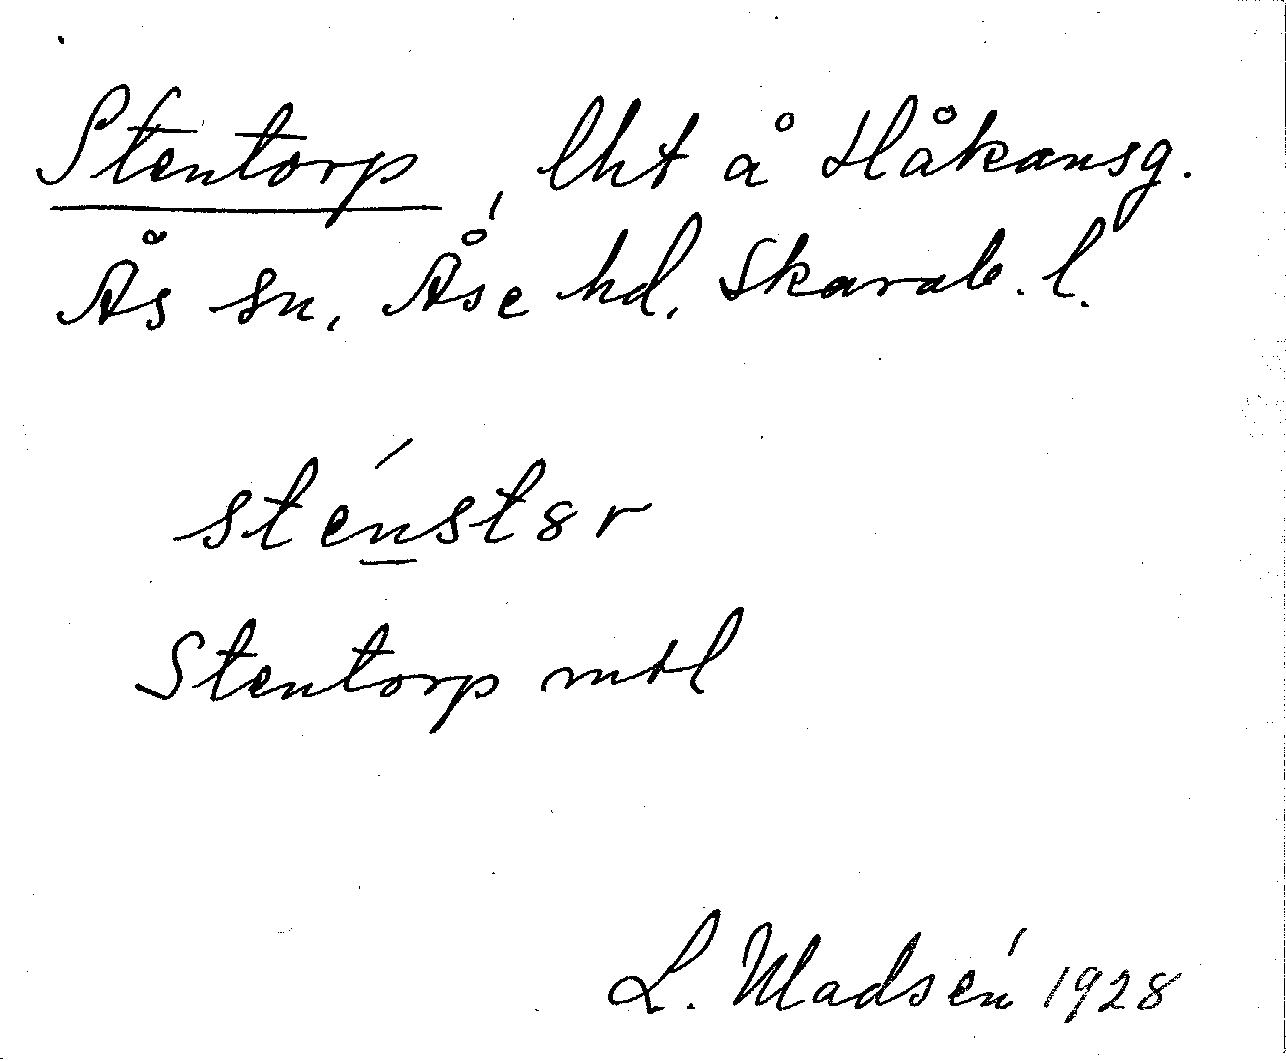 Stentorp, lht å Håkansg.
Ås sn, Åse hd, Skarab. l.
sténst8r
Stentorp mtl
L. Madsén 1928